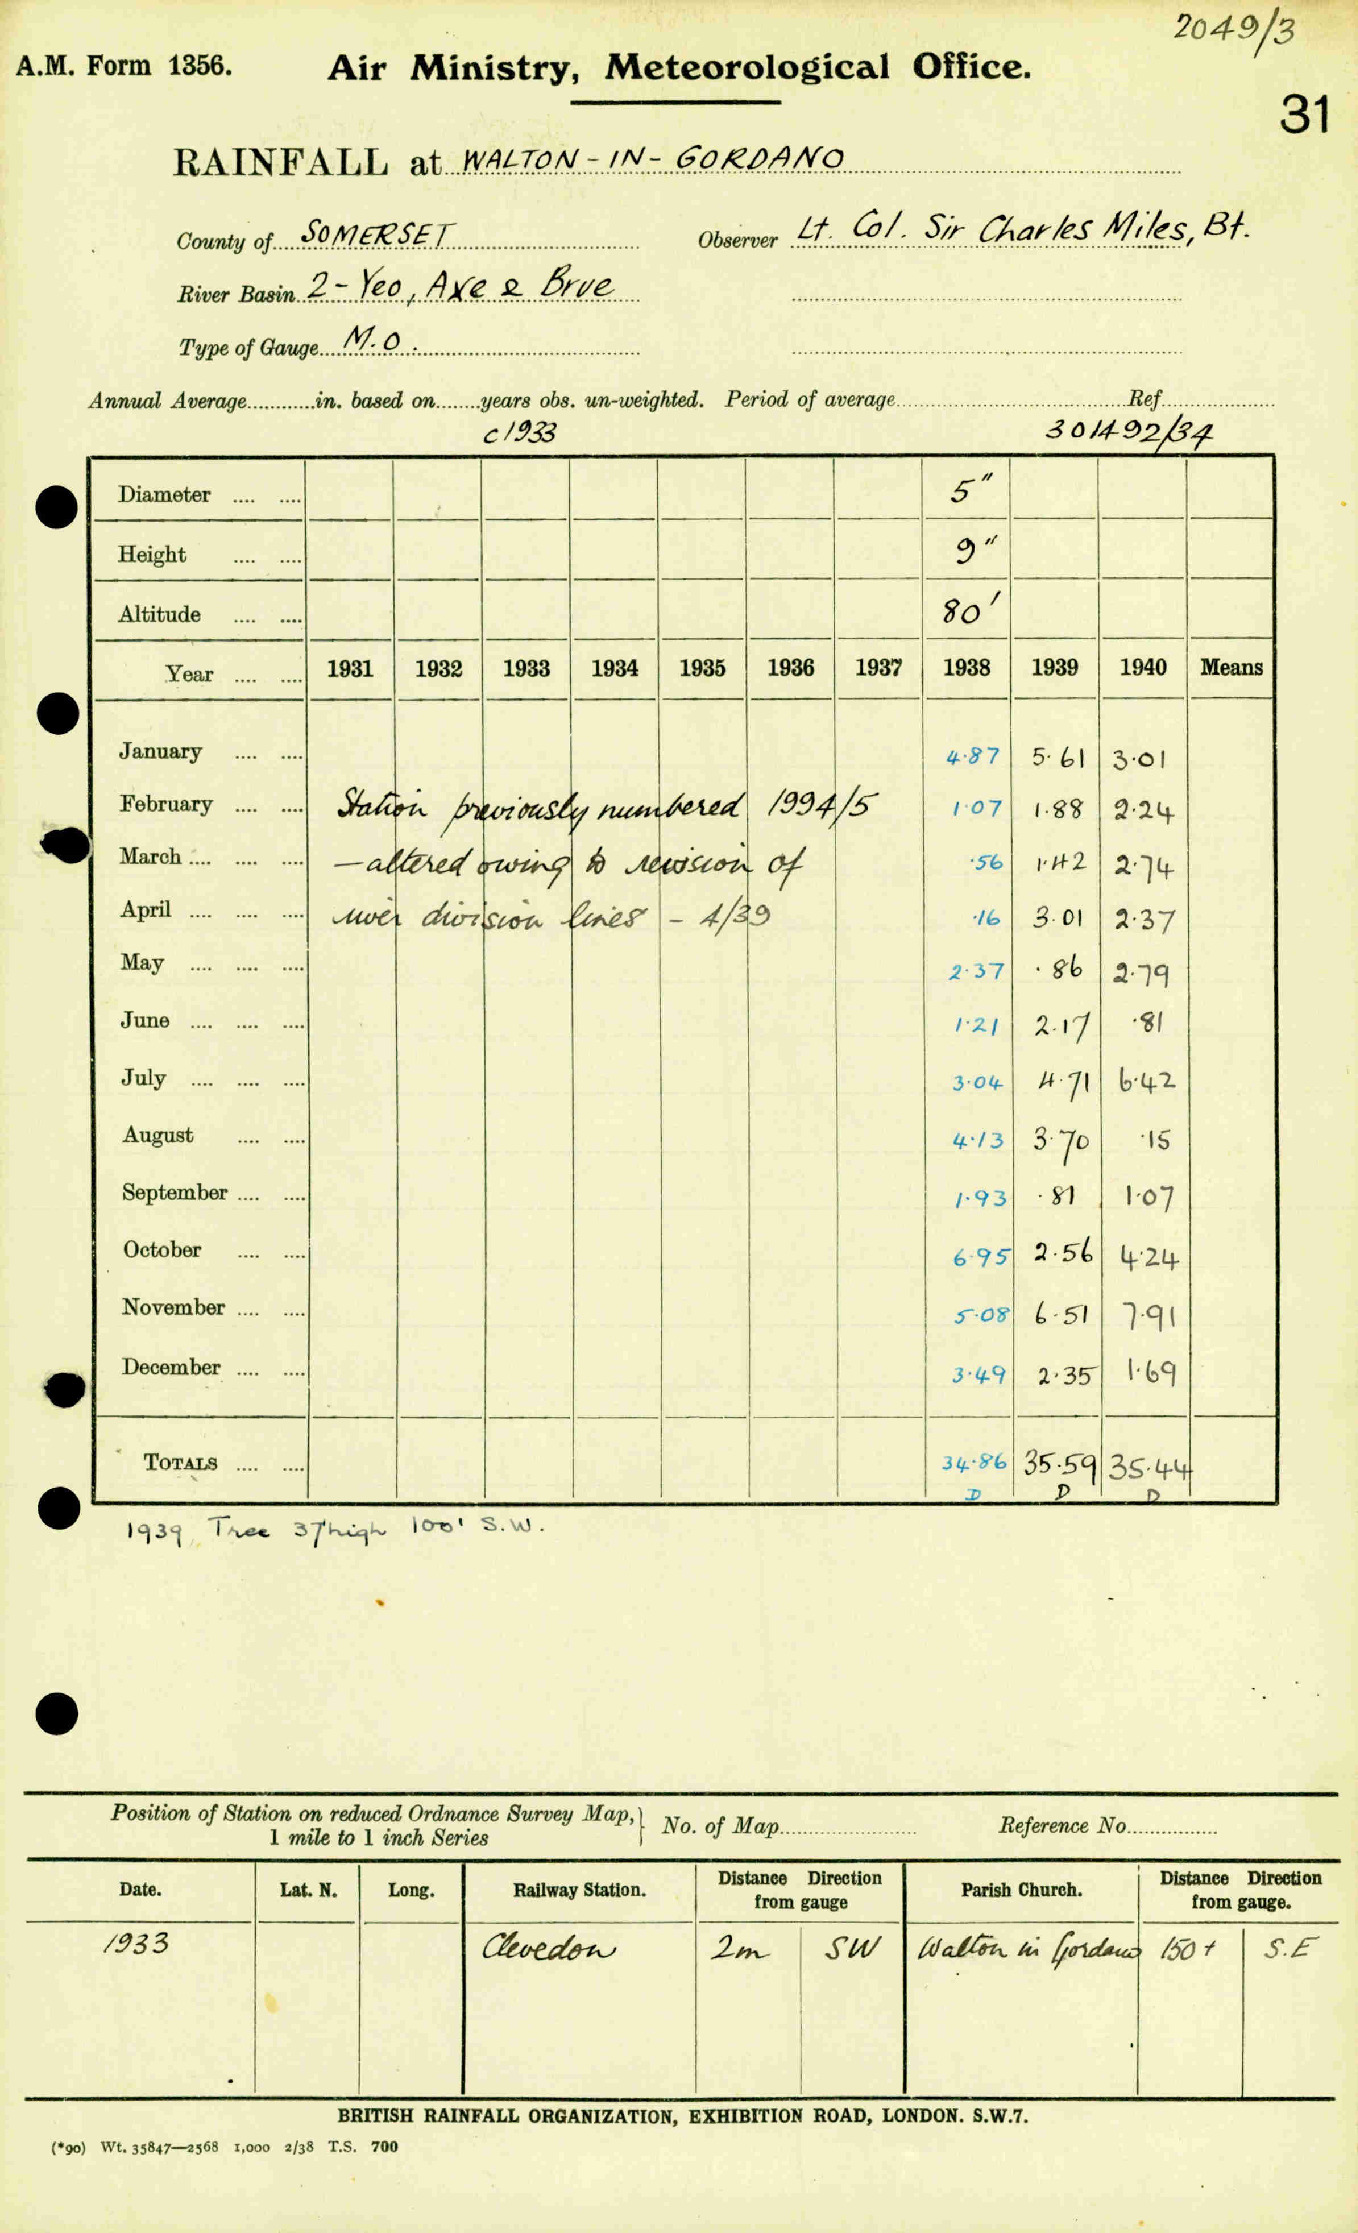 2049/3
A.M. Form 1356. Air Ministry, Meteorological Office.
31
RAINFALL at WALTON-IN-GORDANO
County of SOMERSET Observer Lt. Col. Sir Charles Miles, Bt.
River Basin 2 - Yeo, Axe & Brue
Type of Gauge M.O.
Annual Average............in. based on........years obs. un-weighted. Period of average.............Ref.............
c1933 301492/34
Diameter .... .... 5"
Height .... .... 9"
Altitude .... .... 80'
Year .... .... 1931 1932 1933 1934 1935 1936 1937 1938 1939 1940 Means
January .... .... 4.87 5.61 3.01
February .... .... Station previously numbered 1994/5 1.07 1.88 2.24
March .... .... .... — altered owing to revision of .56 1.42 2.74
April .... .... .... river division lines - 4/39 .16 3.01 2.37
May .... .... .... 2.37 .86 2.79
June .... .... .... 1.21 2.17 .81
July .... .... .... 3.04 4.71 6.42
August .... .... 4.13 3.70 .15
September .... .... 1.93 .81 1.07
October .... .... 6.95 2.56 4.24
November .... .... 5.08 6.51 7.91
December .... .... 3.49 2.35 1.69
TOTALS .... .... 34.86 35.59 35.44
D D D
1939, Tree 37' high 100' S.W.
Position of Station on reduced Ordnance Survey Map, } No. of Map............ Reference No............
1 mile to 1 inch Series
Date. Lat. N. Long. Railway Station. Distance Direction from gauge Parish Church. Distance Direction from gauge.
1933 Clevedon 2m SW Walton in Gordano 150+ S.E
BRITISH RAINFALL ORGANIZATION, EXHIBITION ROAD, LONDON. S.W.7.
(*90) Wt. 35847—2568 1,000 2/38 T.S. 700